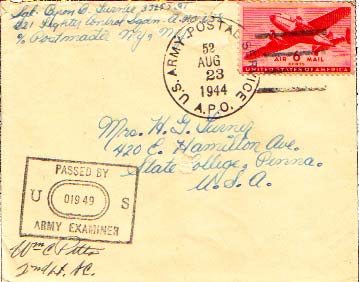 Sgt. Byron D. Turner
Fighter Control Sqdn. A.P.O.
% Postmaster N.Y., N.Y.
U.S. ARMY POSTAL SERVICE
52
AUG
23
1944
A.P.O.
AIR 6 MAIL
CENTS
UNITED STATES OF AMERICA
Mrs. H. G. Turner
420 E. Hamilton Ave.
State College, Penna.
U.S.A.
PASSED BY
U 01949 S
ARMY EXAMINER
Wm C Pitts
2nd Lt. AC.